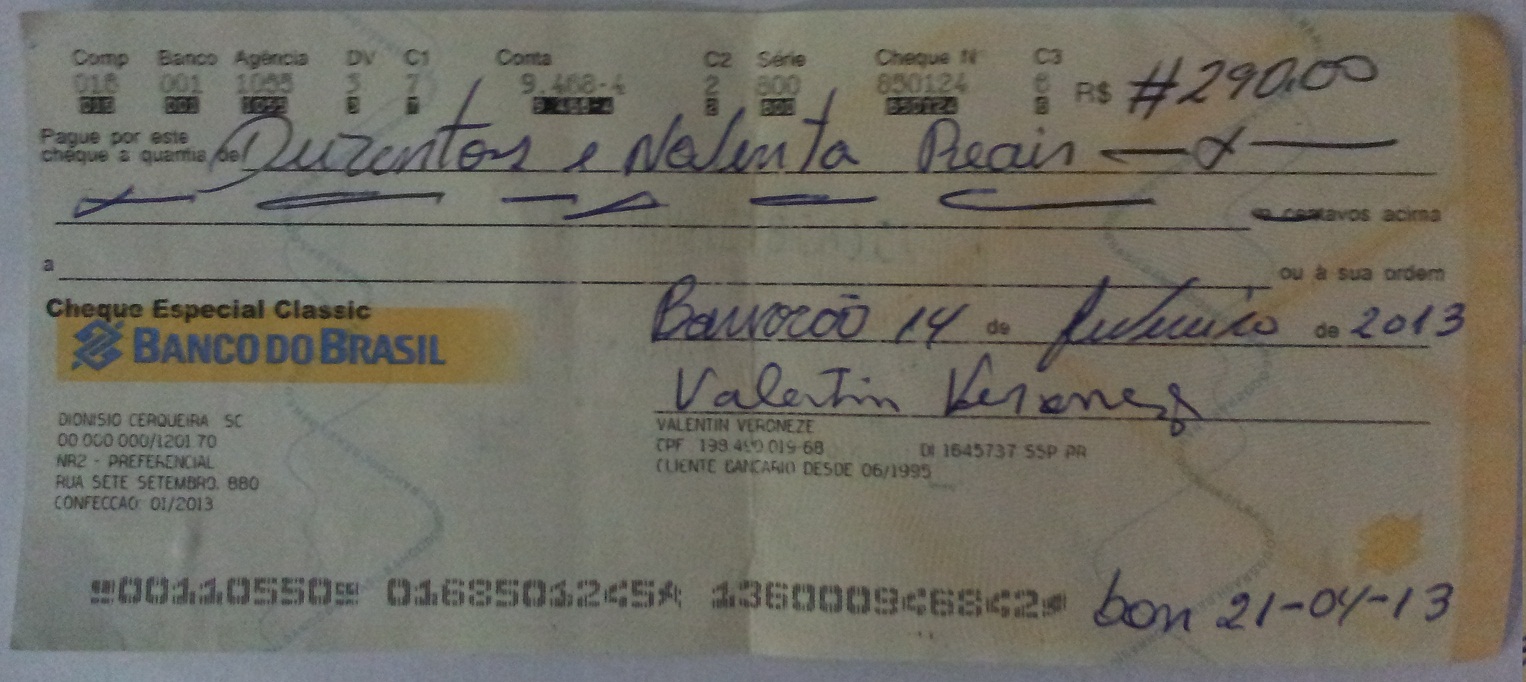 Comp Banco Agência DV C1 Conta C2 Série Cheque Nº C3
016 001 1055 3 7 9.468-4 2 800 850124 6 R$ #290,00
Pague por este
cheque a quantia de Duzentos e Noventa Reais
e centavos acima
a ou à sua ordem
Cheque Especial Classic
BANCO DO BRASIL
Barracão 14 de fevereiro de 2013
Valentin Veroneze
DIONISIO CERQUEIRA SC
00 000 000/1201 70
NR2 - PREFERENCIAL
RUA SETE SETEMBRO, 880
CONFECCAO: 01/2013
VALENTIN VERONEZE
CPF DI 1645737 SSP PR
CLIENTE BANCARIO DESDE 06/1995
bon 21-04-13